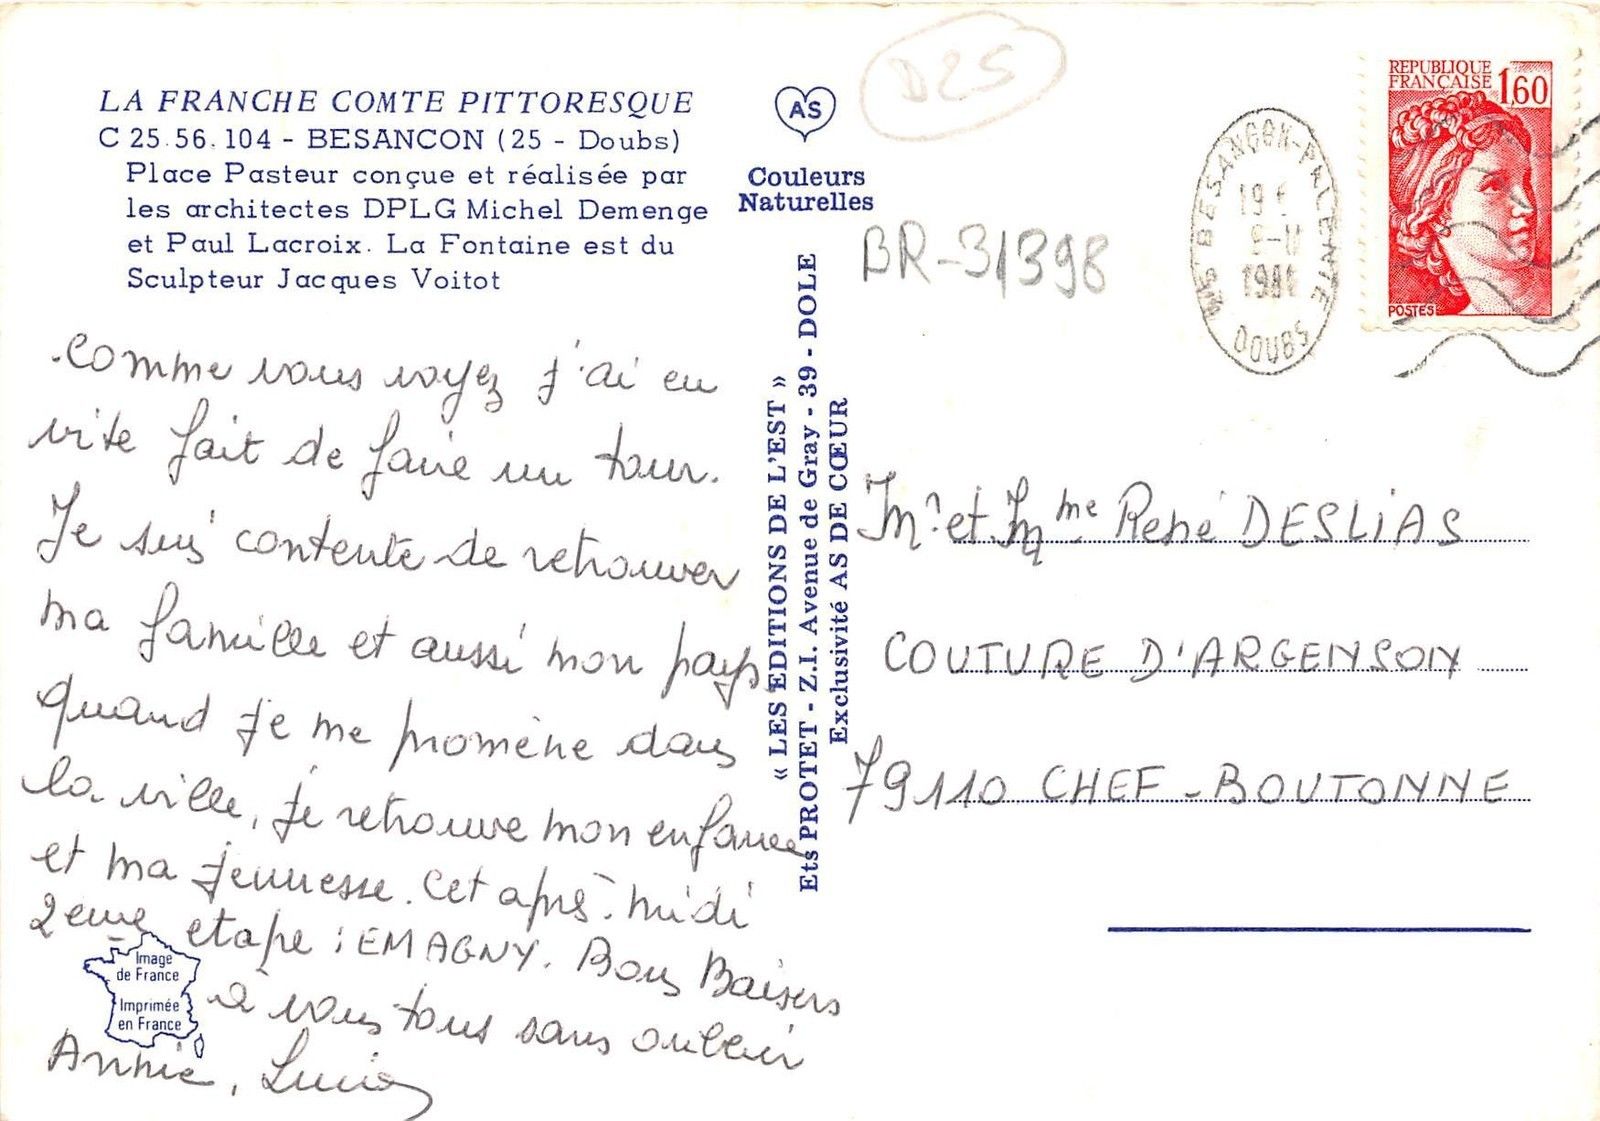 LA FRANCHE COMTE PITTORESQUE
C 25.56.104 - BESANCON (25 - Doubs)
Place Pasteur conçue et réalisée par
les architectes DPLG Michel Demenge
et Paul Lacroix. La Fontaine est du
Sculpteur Jacques Voitot
AS
Couleurs
Naturelles
D25
BR-31398
BESANÇON-PALENTE
DOUBS
REPUBLIQUE
FRANÇAISE
1,60
POSTES
Comme vous voyez j'ai eu
vite fait de faire un tour.
Je suis contente de retrouver
ma famille et aussi mon pays
quand je me promène dans
la ville, je retrouve mon enfance
et ma jeunesse. Cet après-midi
2eme etape : EMAGNY. Bons Baisers
à vous tous sans oublier
Annie, Lucien
Image
de France
Imprimée
en France
« LES EDITIONS DE L'EST »
Ets PROTET - Z.I. Avenue de Gray - 39 - DOLE
Exclusivité AS DE CŒUR
Mr et Mme René DESLIAS
COUTURE D'ARGENSON
79110 CHEF-BOUTONNE